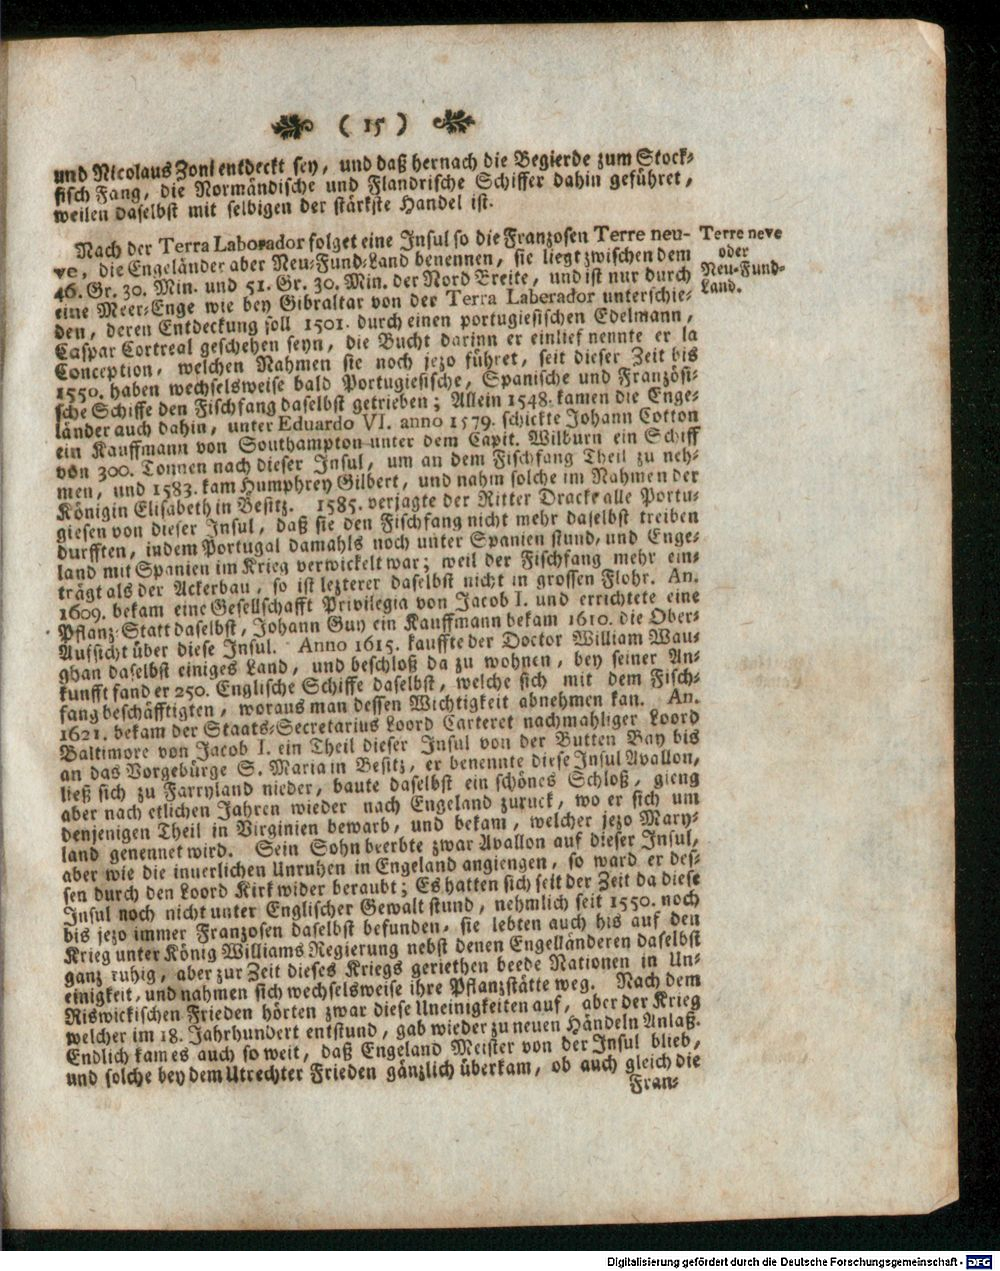 ( 15 )
und Nicolaus Zoni entdeckt sey, und daß hernach die Begierde zum Stock-
fisch Fang, die Normändische und Flandrische Schiffer dahin geführet,
weilen daselbst mit selbigen der stärkste Handel ist.
Nach der Terra Laborador folget eine Insul so die Franzosen Terre neu-
ve, die Engeländer aber Neu-Fund-Land benennen, sie liegt zwischen dem
46. Gr. 30. Min. und 51. Gr. 30. Min. der Nord Breite, und ist nur durch
eine Meer-Enge wie bey Gibraltar von der Terra Laberador unterschie-
den, deren Entdeckung soll 1501. durch einen portugiesischen Edelmann,
Caspar Cortreal geschehen seyn, die Bucht darinn er einlief nennte er la
Conception, welchen Nahmen sie noch jezo führet, seit dieser Zeit bis
1550. haben wechselsweise bald Portugiesische, Spanische und Französi-
sche Schiffe den Fischfang daselbst getrieben; Allein 1548. kamen die Enge-
länder auch dahin, unter Eduardo VI. anno 1579. schickte Johann Cotton
ein Kauffmann von Southampton unter dem Capit. Wilburn ein Schiff
von 300. Tonnen nach dieser Insul, um an dem Fischfang Theil zu neh-
men, und 1583. kam Humphrey Gilbert, und nahm solche im Nahmen der
Königin Elisabeth in Besitz. 1585. verjagte der Ritter Dracke alle Portu-
giesen von dieser Insul, daß sie den Fischfang nicht mehr daselbst treiben
durfften, indem Portugal damahls noch unter Spanien stund, und Enge-
land mit Spanien im Krieg verwickelt war; weil der Fischfang mehr ein-
trägt als der Ackerbau, so ist lezterer daselbst nicht in grossen Flohr. An.
1609. bekam eine Gesellschafft Privilegia von Jacob I. und errichtete eine
Pflanz-Statt daselbst, Johann Guy ein Kauffmann bekam 1610. die Ober-
Aufsicht über diese Insul. Anno 1615. kauffte der Doctor William Wau-
ghan daselbst einiges Land, und beschloß da zu wohnen, bey seiner An-
kunfft fand er 250. Englische Schiffe daselbst, welche sich mit dem Fisch-
fang beschäfftigten, woraus man dessen Wichtigkeit abnehmen kan. An.
1621. bekam der Staats-Secretarius Loord Carteret nachmahliger Loord
Baltimore von Jacob I. ein Theil dieser Insul von der Butten Bay bis
an das Vorgebürge S. Maria in Besitz, er benennte diese Insul Avallon,
ließ sich zu Farryland nieder, baute daselbst ein schönes Schloß, gieng
aber nach etlichen Jahren wieder nach Engeland zuruck, wo er sich um
denjenigen Theil in Virginien bewarb, und bekam, welcher jezo Mary-
land genennet wird. Sein Sohn beerbte zwar Avallon auf dieser Insul,
aber wie die innerlichen Unruhen in Engeland angiengen, so ward er des-
sen durch den Loord Kirk wider beraubt; Es hatten sich seit der Zeit da diese
Insul noch nicht unter Englischer Gewalt stund, nehmlich seit 1550. noch
bis jezo immer Franzosen daselbst befunden, sie lebten auch bis auf den
Krieg unter König Williams Regierung nebst denen Engelländeren daselbst
ganz ruhig, aber zur Zeit dieses Kriegs geriethen beede Nationen in Un-
einigkeit, und nahmen sich wechselsweise ihre Pflanzstätte weg. Nach dem
Riswickischen Frieden hörten zwar diese Uneinigkeiten auf, aber der Krieg
welcher im 18. Jahrhundert entstund, gab wieder zu neuen Händeln Anlaß.
Endlich kam es auch so weit, daß Engeland Meister von der Insul blieb,
und solche bey dem Utrechter Frieden gänzlich überkam, ob auch gleich die
Fran-
Terre neve
oder
Neu-Fund-
Land.
Digitalisierung gefördert durch die Deutsche Forschungsgemeinschaft - DFG